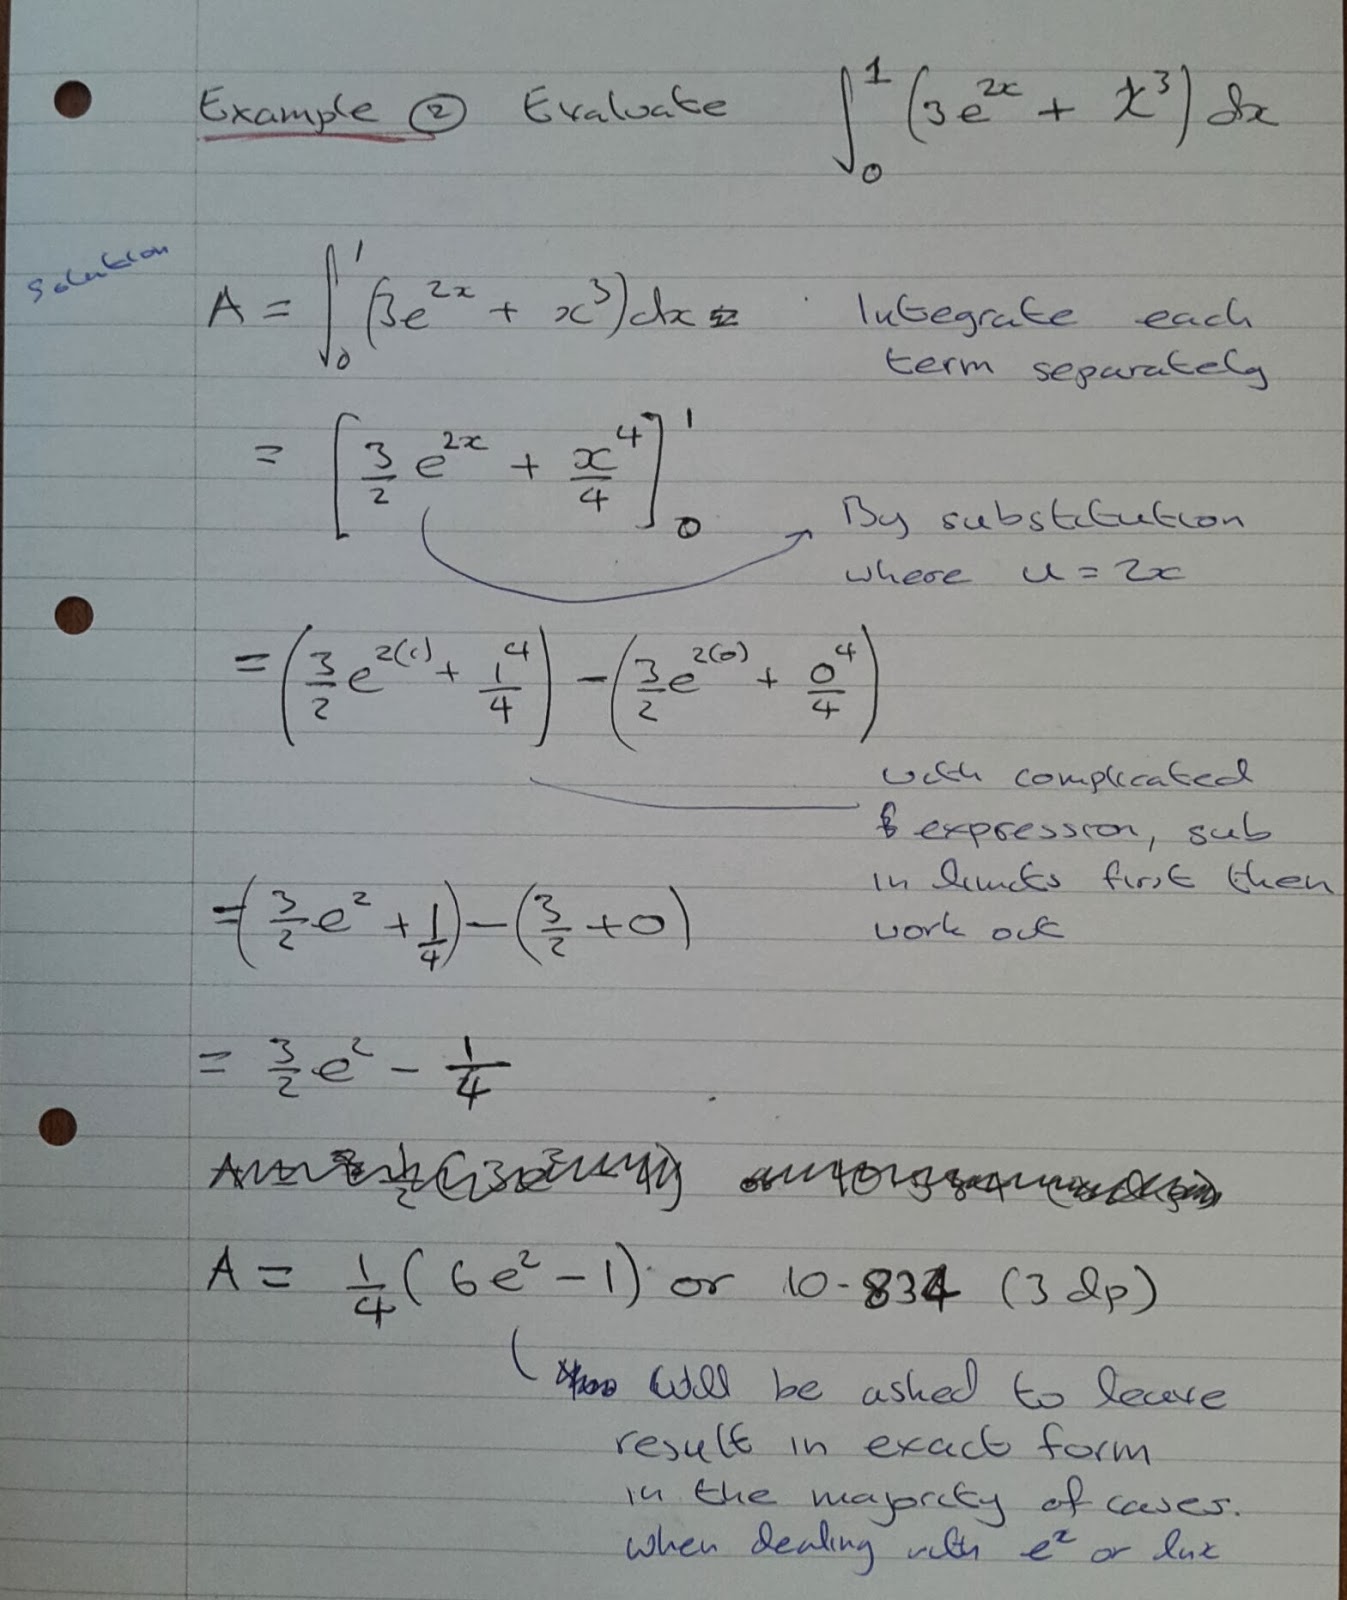 Example ② Evaluate ∫₀¹ (3e²ˣ + x³) dx
Solution
A = ∫₀¹ (3e²ˣ + x³) dx
Integrate each
term separately
= [3/2 e²ˣ + x⁴/4]₀¹
By substitution
where u = 2x
= (3/2 e²⁽¹⁾ + 1⁴/4) - (3/2 e²⁽⁰⁾ + 0⁴/4)
with complicated
expression, sub
in limits first then
work out
= (3/2 e² + 1/4) - (3/2 + 0)
= 3/2 e² - 1/4
A = 1/4 (6e² - 1) or 10.834 (3dp)
Will be asked to leave
result in exact form
in the majority of cases.
when dealing with e² or lnx